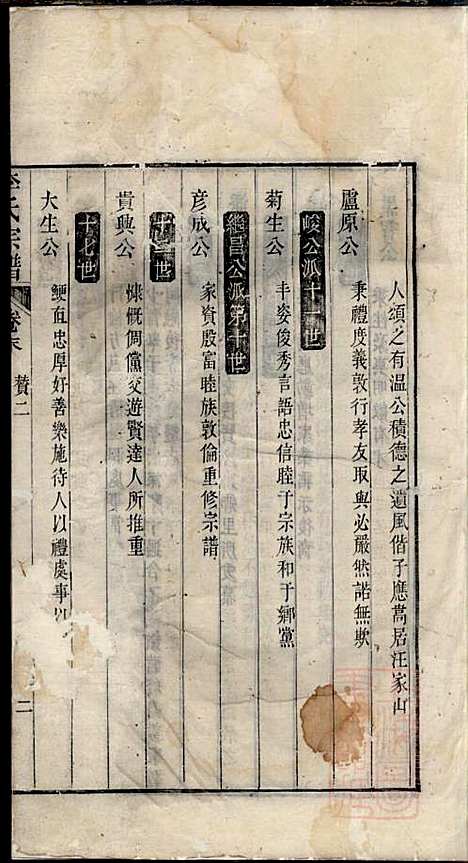 人頌之有温公積德之遺風偕子應嵩居汪家山
盧原公
秉禮度義敦行孝友取與必嚴然諾無欺
峻公派十一世
菊生公
丰姿俊秀言語忠信睦于宗族和于鄉黨
繼昌公派第十世
彦成公
家資殷富睦族敦倫重修宗譜
十二世
貴興公
慷慨倜儻交遊賢達人所推重
十七世
大生公
鯁直忠厚好善樂施待人以禮處事以
氏宗譜
卷末
贊二
二